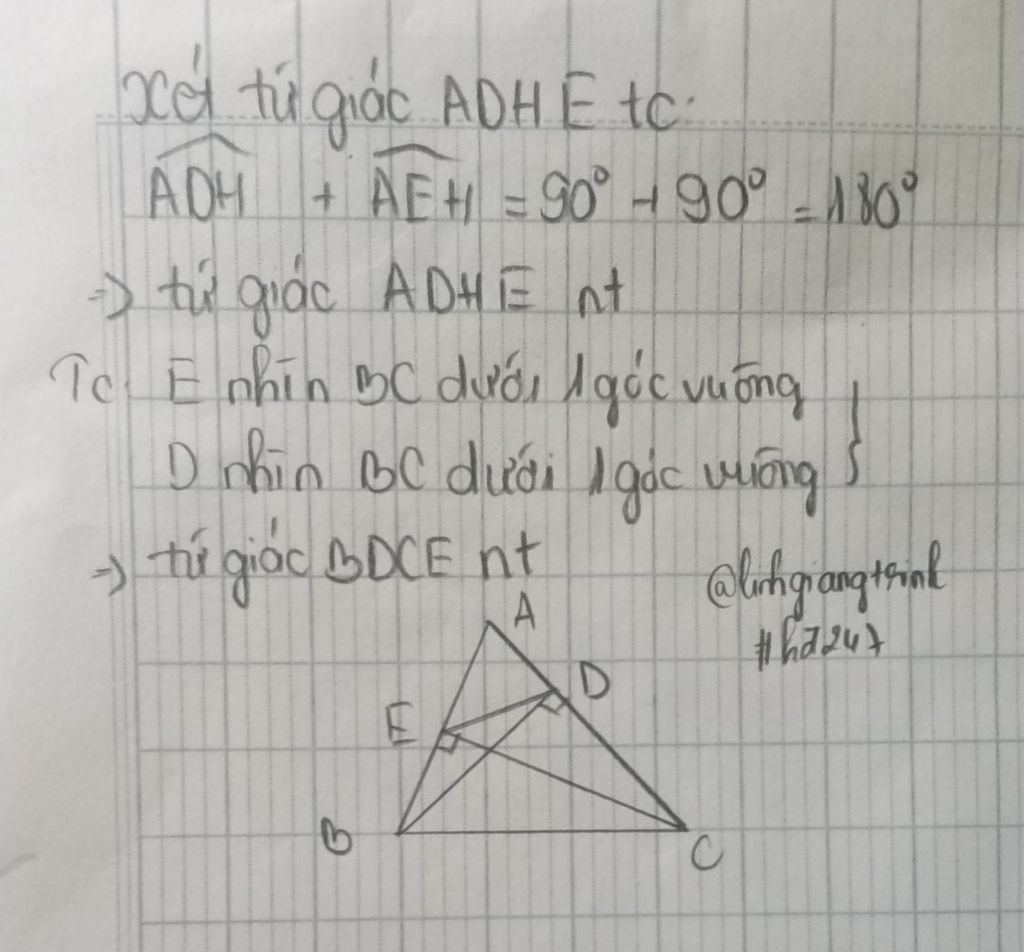 Xét tứ giác ADHE tc:
ADH + AEH = 90° + 90° = 180°
=> tứ giác ADHE nt
Tc: E nhìn BC dưới 1 góc vuông
D nhìn BC dưới 1 góc vuông }
=> tứ giác BDCE nt
@linhgiangtrinh
#hd247
A
D
E
B
C